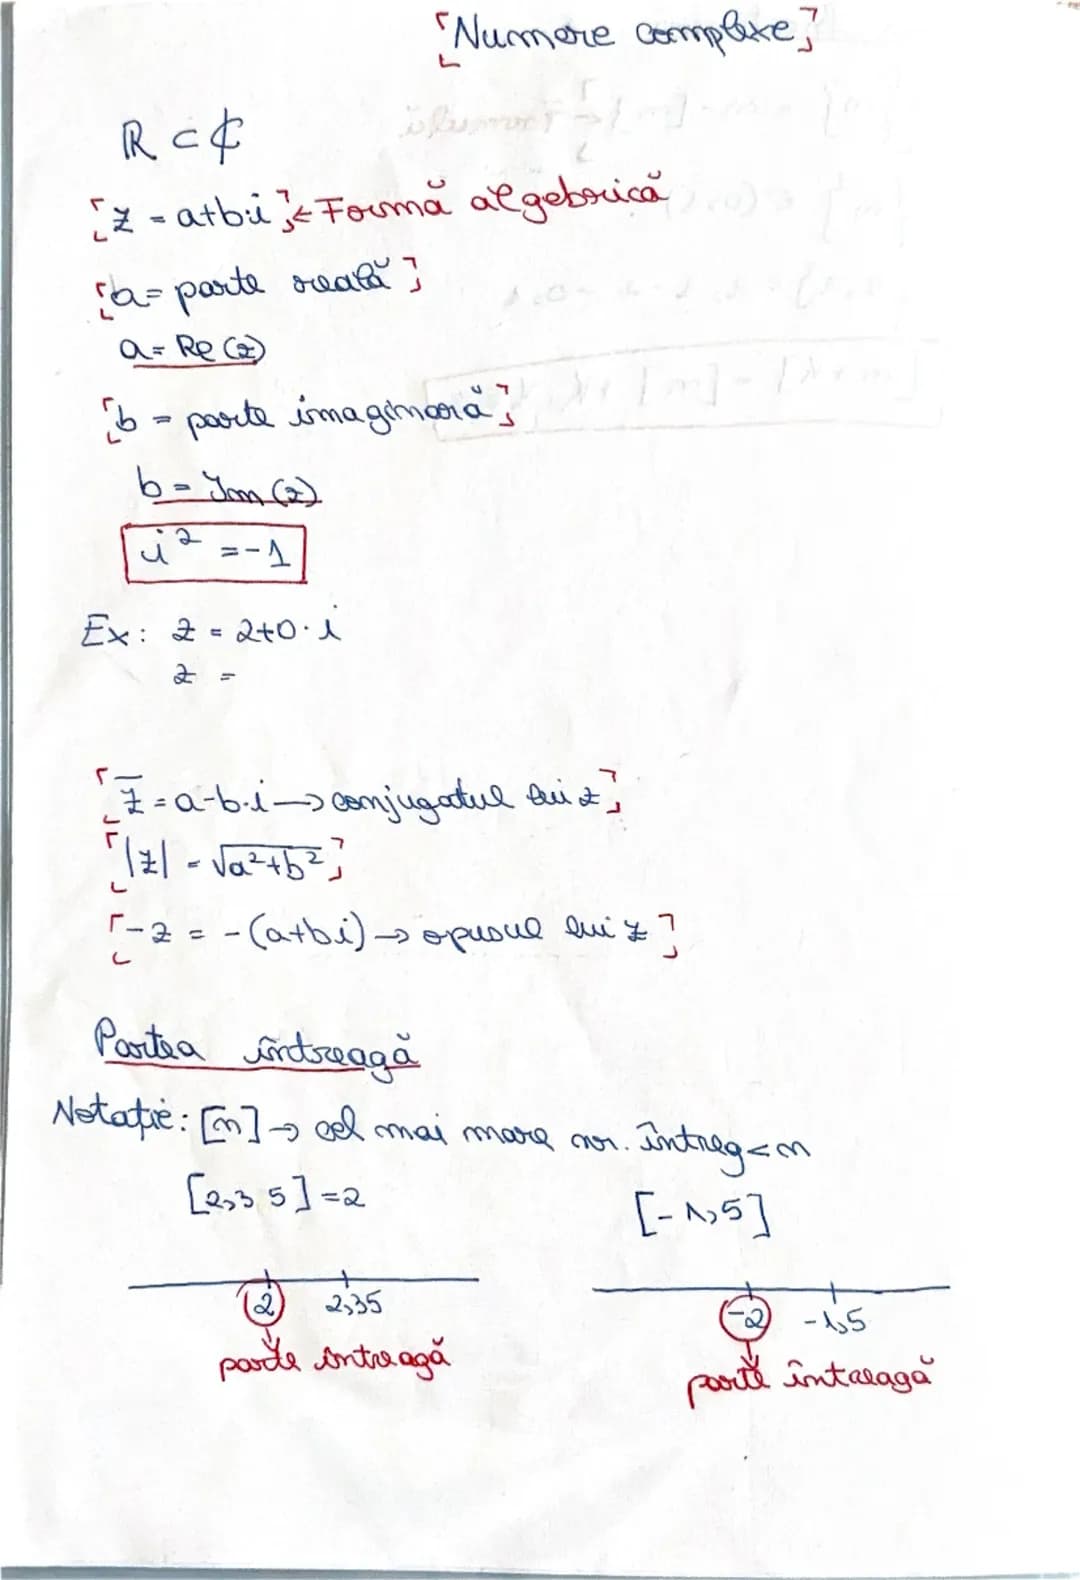 Numere complexe
ℝ ⊂ ℂ
z = a+bi ← Formă algebrică
a = parte reală
a = Re(z)
b = parte imaginară
b = Im(z)
i² = -1
Ex: z = 2+0·i
z =
z̅ = a-b·i → conjugatul lui z
|z| = √a²+b²
-z = -(a+bi) → opusul lui z
Partea întreagă
Notație: [n] → cel mai mare nr. întreg < n
[2,35] = 2 [-1,5]
2 2,35 -2 -1,5
parte întreagă parte întreagă